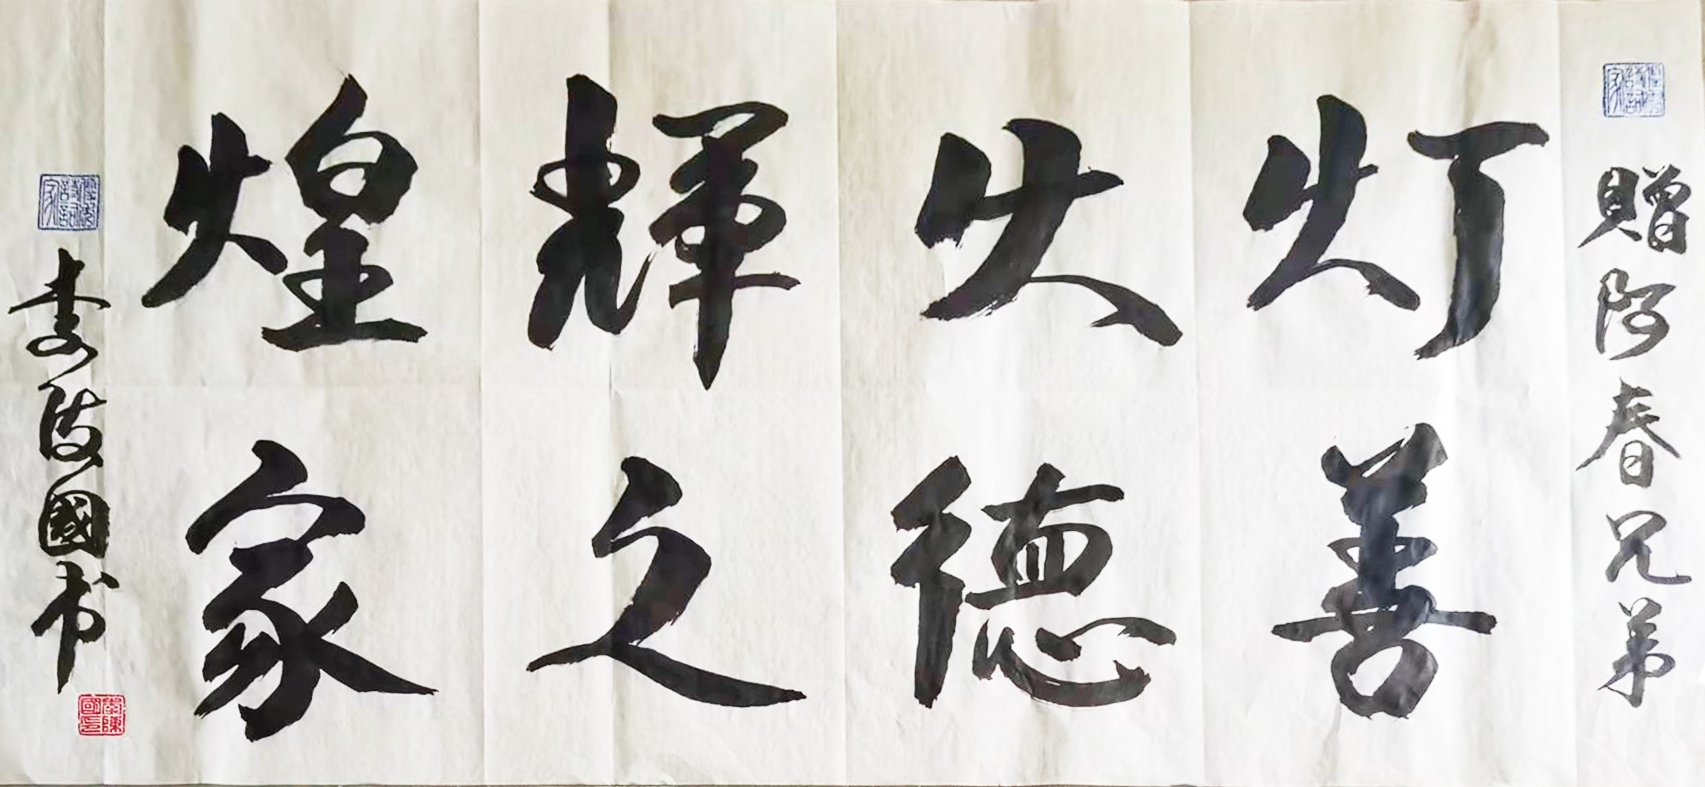 贈阿春兄弟
灯火輝煌
善德之家
李陳國书